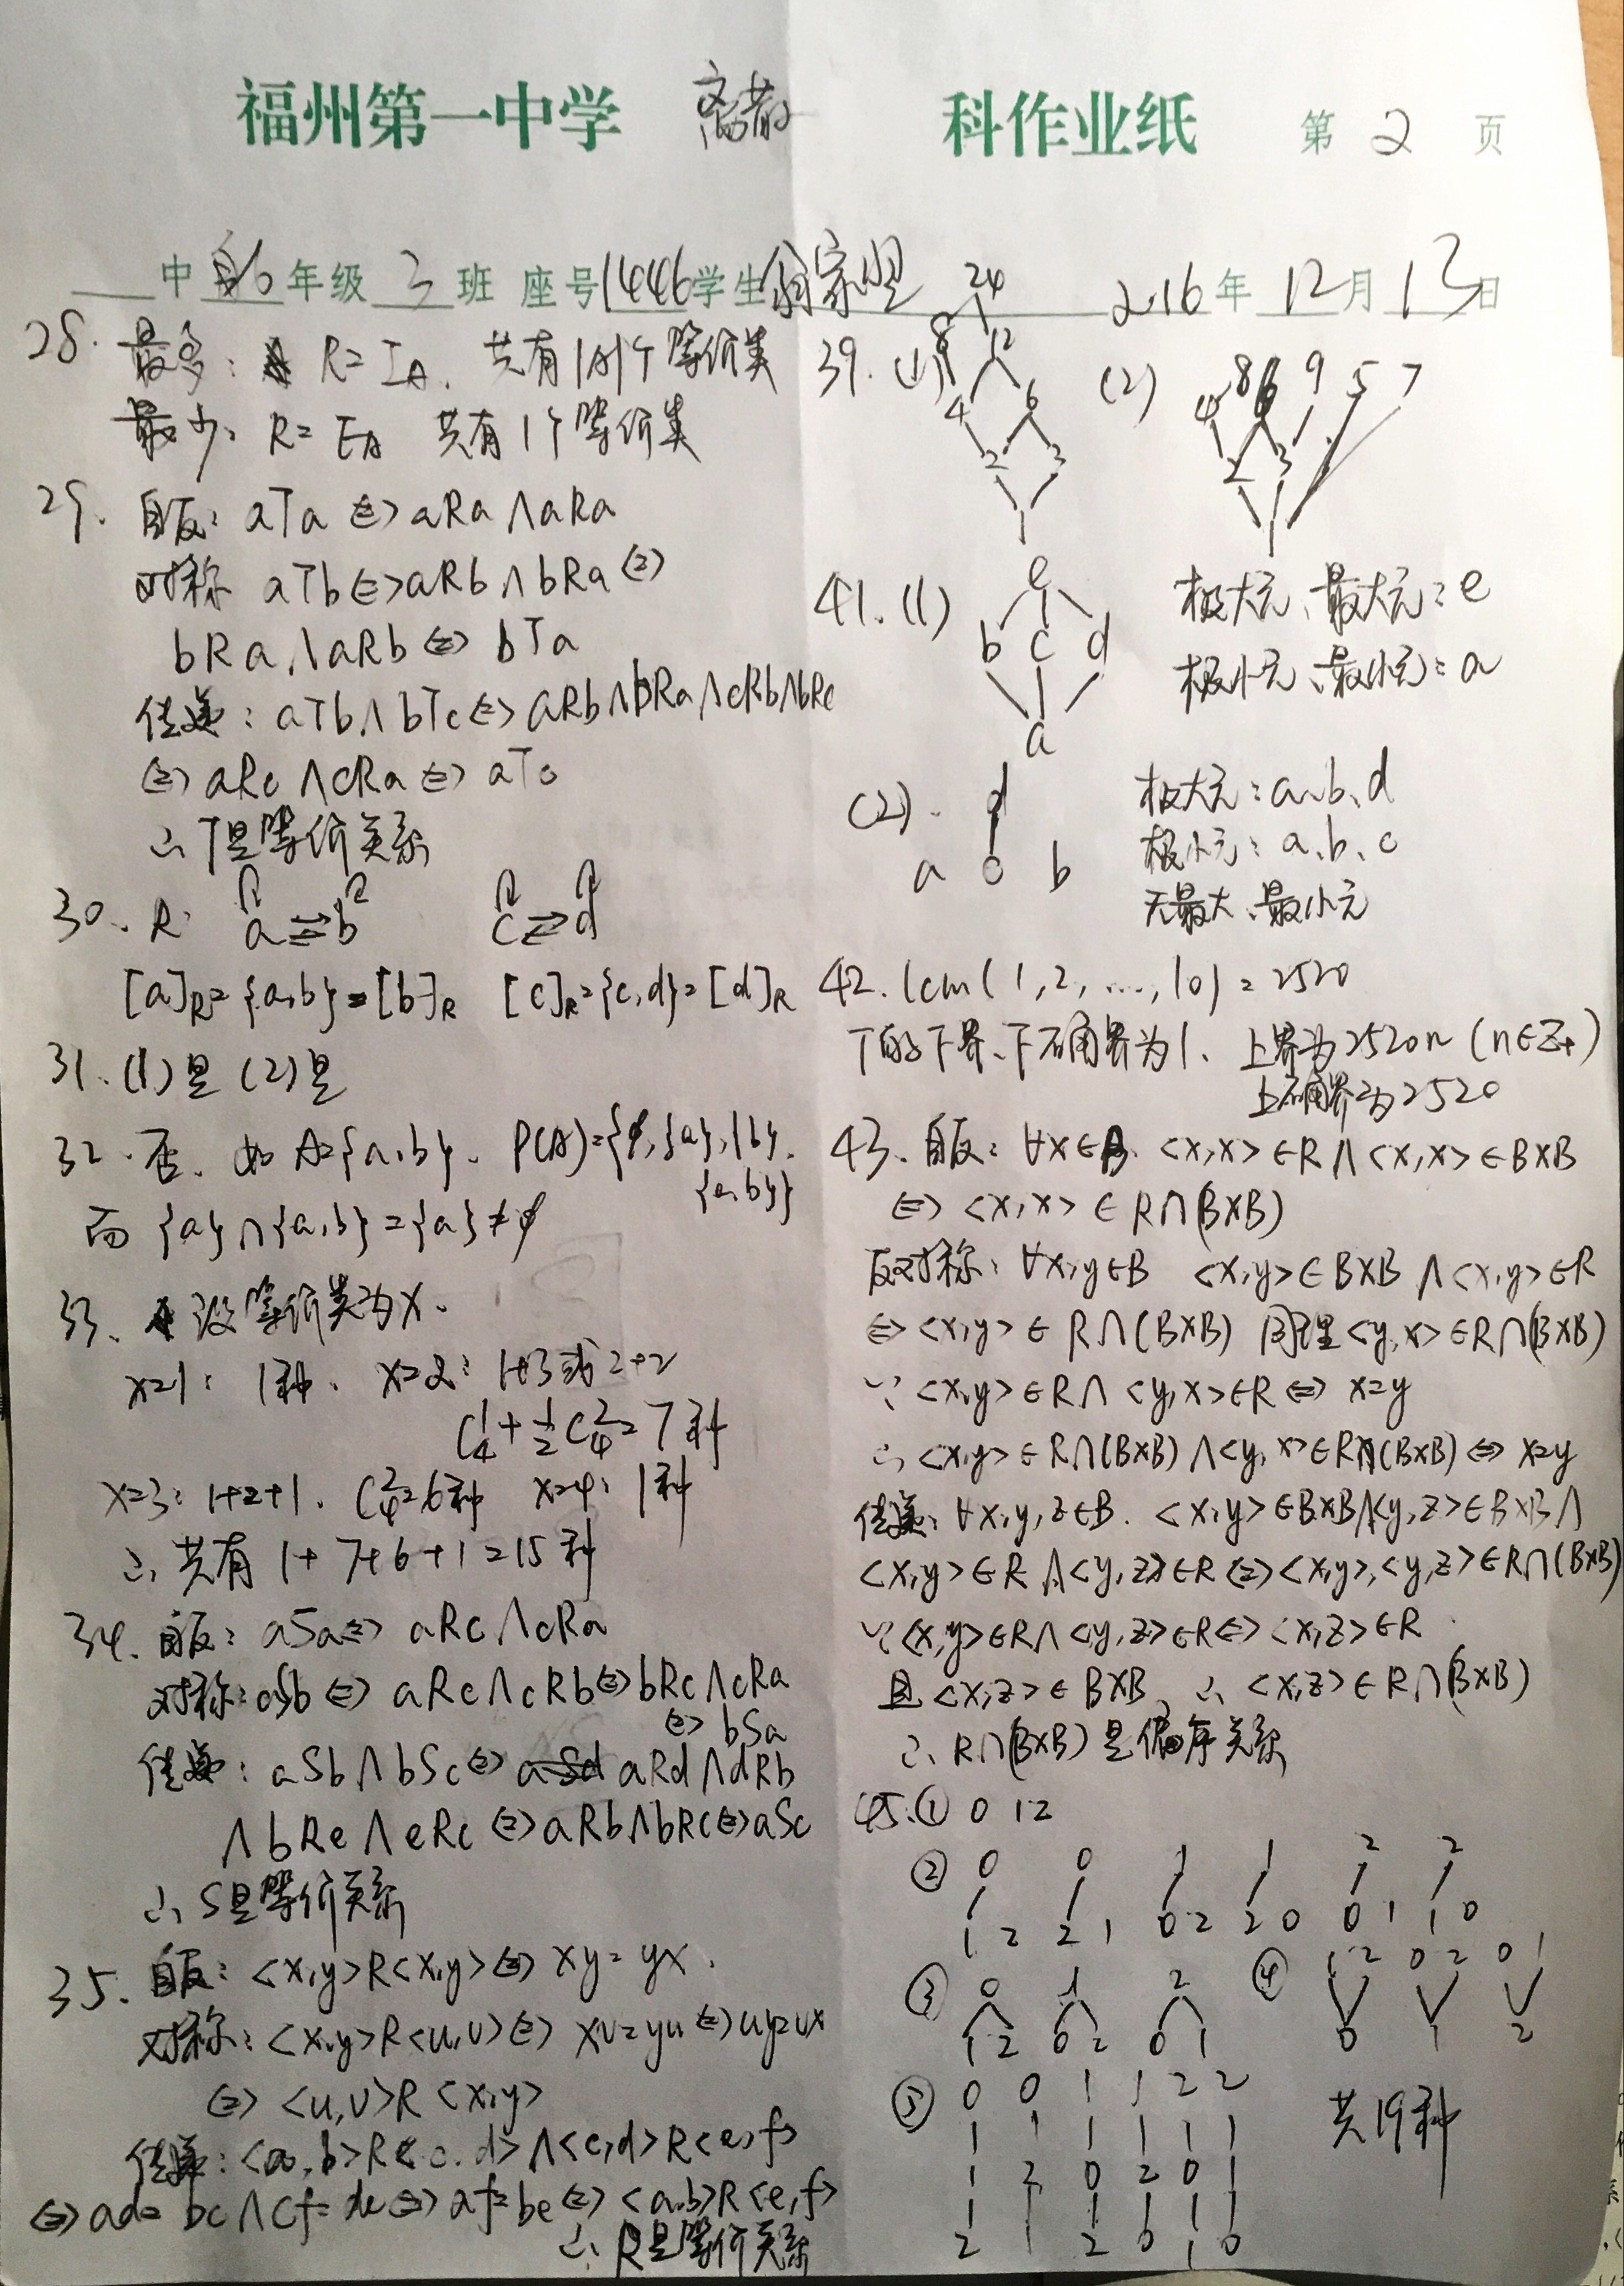 福州第一中学 离散 科作业纸 第 2 页
中 自6 年级 3 班 座号 1446 学生 翁家翌 2016 年 12 月 13 日
28. 最多: R=I_A. 共有|A|个等价类
最少: R=E_A 共有1个等价类
29. 自反: aTa ⇔ aRa∧aRa
对称 aTb⇔aRb∧bRa⇔
bRa∧aRb⇔bTa
传递: aTb∧bTc⇔aRb∧bRa∧cRb∧bRc
⇔aRc∧cRa⇔aTc
∴T是等价关系
30. R: a⇌b c⇌d
[a]_R={a,b}=[b]_R [c]_R={c,d}=[d]_R
31. (1)是 (2)是
32. 否. 如 A={a,b}. P(A)={∅,{a},{b},
{a,b}}
而 {a}∩{a,b}={a}≠∅
33. 设等价类为x.
x=1: 1种. x=2: 1+3或2+2
C_4^1+1/2C_4^2=7种
x=3: 1+2+1. C_4^2=6种 x=4: 1种
∴共有 1+7+6+1=15种
34. 自反: aSa⇔ aRc∧cRa
对称: aSb⇔ aRc∧cRb⇔bRc∧cRa
⇔bSa
传递: aSb∧bSc⇔ aRd∧dRb
∧bRe∧eRc⇔aRb∧bRc⇔aSc
∴S是等价关系
35. 自反: <x,y>R<x,y>⇔ xy=yx.
对称: <x,y>R<u,v>⇔ xv=yu⇔uy=vx
⇔<u,v>R<x,y>
传递: <a,b>R<c,d>∧<c,d>R<e,f>
⇔ad=bc∧cf=de⇔af=be⇔<a,b>R<e,f>
∴R是等价关系
39. (1)
24
8 12
4 6
2 3
1
(2)
4 8 6 9 5 7
2 3
1
41. (1)
e
b c d
a
极大元、最大元: e
极小元、最小元: a
(2).
d
a c b
极大元: a、b、d
极小元: a、b、c
无最大、最小元
42. lcm(1,2,…,10)=2520
T的下界、下确界为1、上界为2520n (n∈Z+)
上确界为2520
43. 自反: ∀x∈B. <x,x>∈R∧<x,x>∈B×B
⇔<x,x>∈R∩(B×B)
反对称: ∀x,y∈B <x,y>∈B×B∧<x,y>∈R
⇔<x,y>∈R∩(B×B) 同理<y,x>∈R∩(B×B)
∵<x,y>∈R∧<y,x>∈R⇔x=y
∴<x,y>∈R∩(B×B)∧<y,x>∈R∩(B×B)⇔x=y
传递: ∀x,y,z∈B. <x,y>∈B×B∧<y,z>∈B×B∧
<x,y>∈R∧<y,z>∈R⇔<x,y>,<y,z>∈R∩(B×B)
∵<x,y>∈R∧<y,z>∈R⇔<x,z>∈R
且<x,z>∈B×B、∴<x,z>∈R∩(B×B)
∴R∩(B×B)是偏序关系
45. ① 0 1 2
② 0 0 1 1 2 2
1 2 2 1 0 2 2 0 0 1 1 0
③ 0 1 2
1 2 0 2 0 1
④ 1 2 0 2 0 1
0 1 2
⑤ 0 0 1 1 2 2
1 2 0 2 0 1
2 1 2 0 1 0
共19种